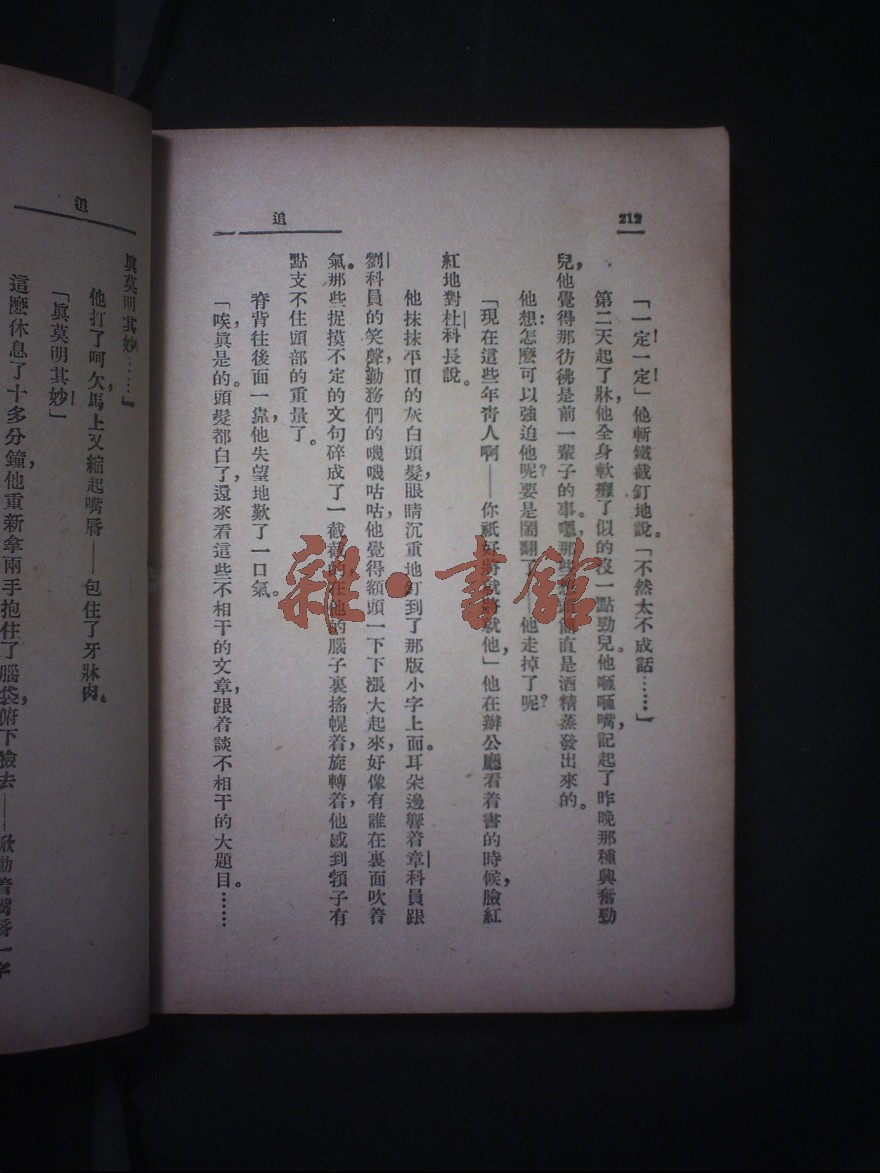 212
追
「一定一定」他斬鐵截釘地說。「不然太不成話……」
第二天起了牀，他全身軟癱了似的沒一點勁兒。他咂咂嘴，記起了昨晚那種興奮勁
兒，他覺得那彷彿是前一輩子的事。嗯，那些 直是酒精蒸發出來的。
他想：怎麽可以強迫他呢？要是鬧翻了——他走掉了呢？
「現在這些年青人啊——你祇好將就將就他，」他在辦公廳看着書的時候，臉紅
紅地對杜科長說。
他抹抹平頂的灰白頭髮，眼睛沉重地釘到了那版小字上面。耳朵邊響着章科員跟
劉科員的笑聲，勤務們的嘰嘰咕咕，他覺得額頭一下下漲大起來，好像有誰在裏面吹着
氣。那些捉摸不定的文句碎成了一截截的在他的腦子裏搖幌着，旋轉着，他感到頸子有
點支不住頭部的重量了。
脊背往後面一靠，他失望地歎了一口氣。
「唉，眞是的。頭髮都白了，還來看這些不相干的文章，跟着談不相干的大題目。……
追
眞莫明其妙……」
他打了呵欠，馬上又縮起嘴唇——包住了牙牀肉。
「眞莫明其妙」
這麽休息了十多分鐘，他重新拿兩手抱住了腦袋，俯下臉去——掀動着嘴唇一字
雜·書館